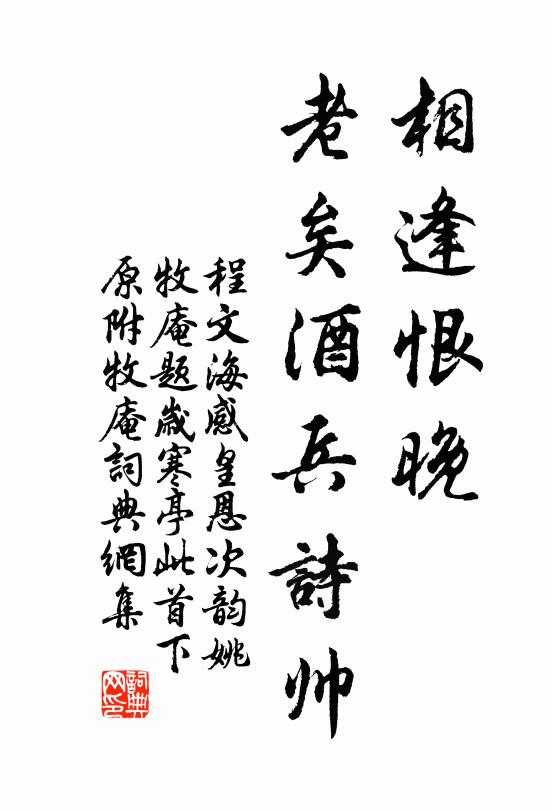 相逢恨晚
老矣酒兵詩帅
程文海感皇恩次韵姚
牧庵题歲寒亭此首下
原附牧庵詞典網集
詞典网印